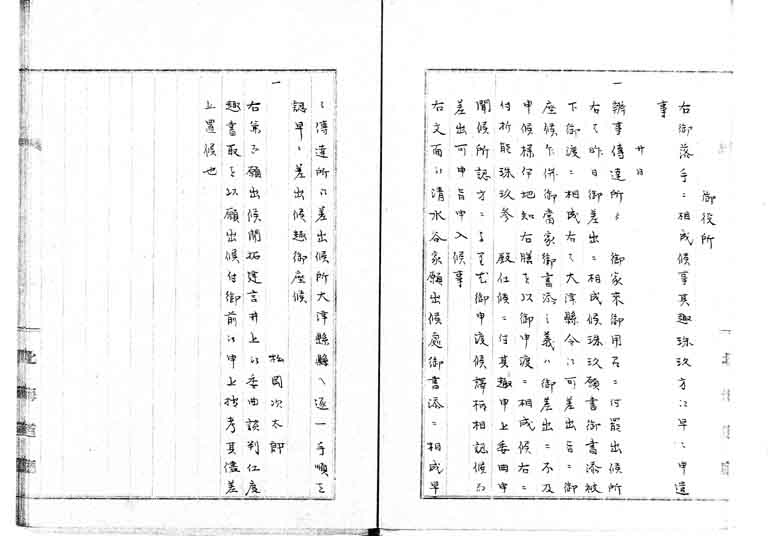 御役所
右御落手ニ相成候事其趣珠玖方江早々申遣
事
廿日
一 辨事傳達所ゟ 御家来御用召ニ付罷出候所
右者昨日御差出ニ相成候珠玖願書御書添被
下御渡ニ相成右者大津縣令江可差出旨ニ御
座候乍併御當家御書添之義ハ御差出ニ不及
申候様伊地知右膳を以御申渡ニ相成候右ニ
付祈能珠玖参 殿仕候ニ付其趣申上委曲申
聞候所認方ニ 御申渡候譯柄相認候而
差出可申旨申入候事
右文面江清水谷家願出候處御書添ニ相成早
々傳達所江差出候所大津縣縣ヘ逐一手順を
認早々差出候趣御座候
一 松岡次太郎
右第而願出候開拓建言井上江委曲談判仕度
趣書取を以願出候付御前江申上拙考其儘差
上置候也